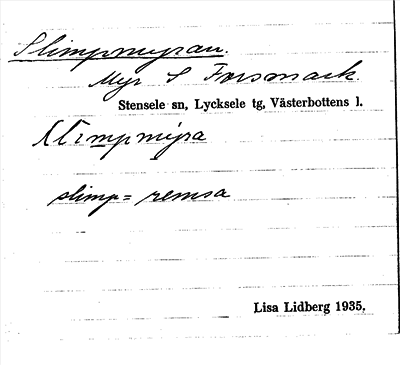 Slimpmyran.
Myr S Forsmark.
Stensele sn, Lycksele tg, Västerbottens l.
slimp = remsa
Lisa Lidberg 1935.